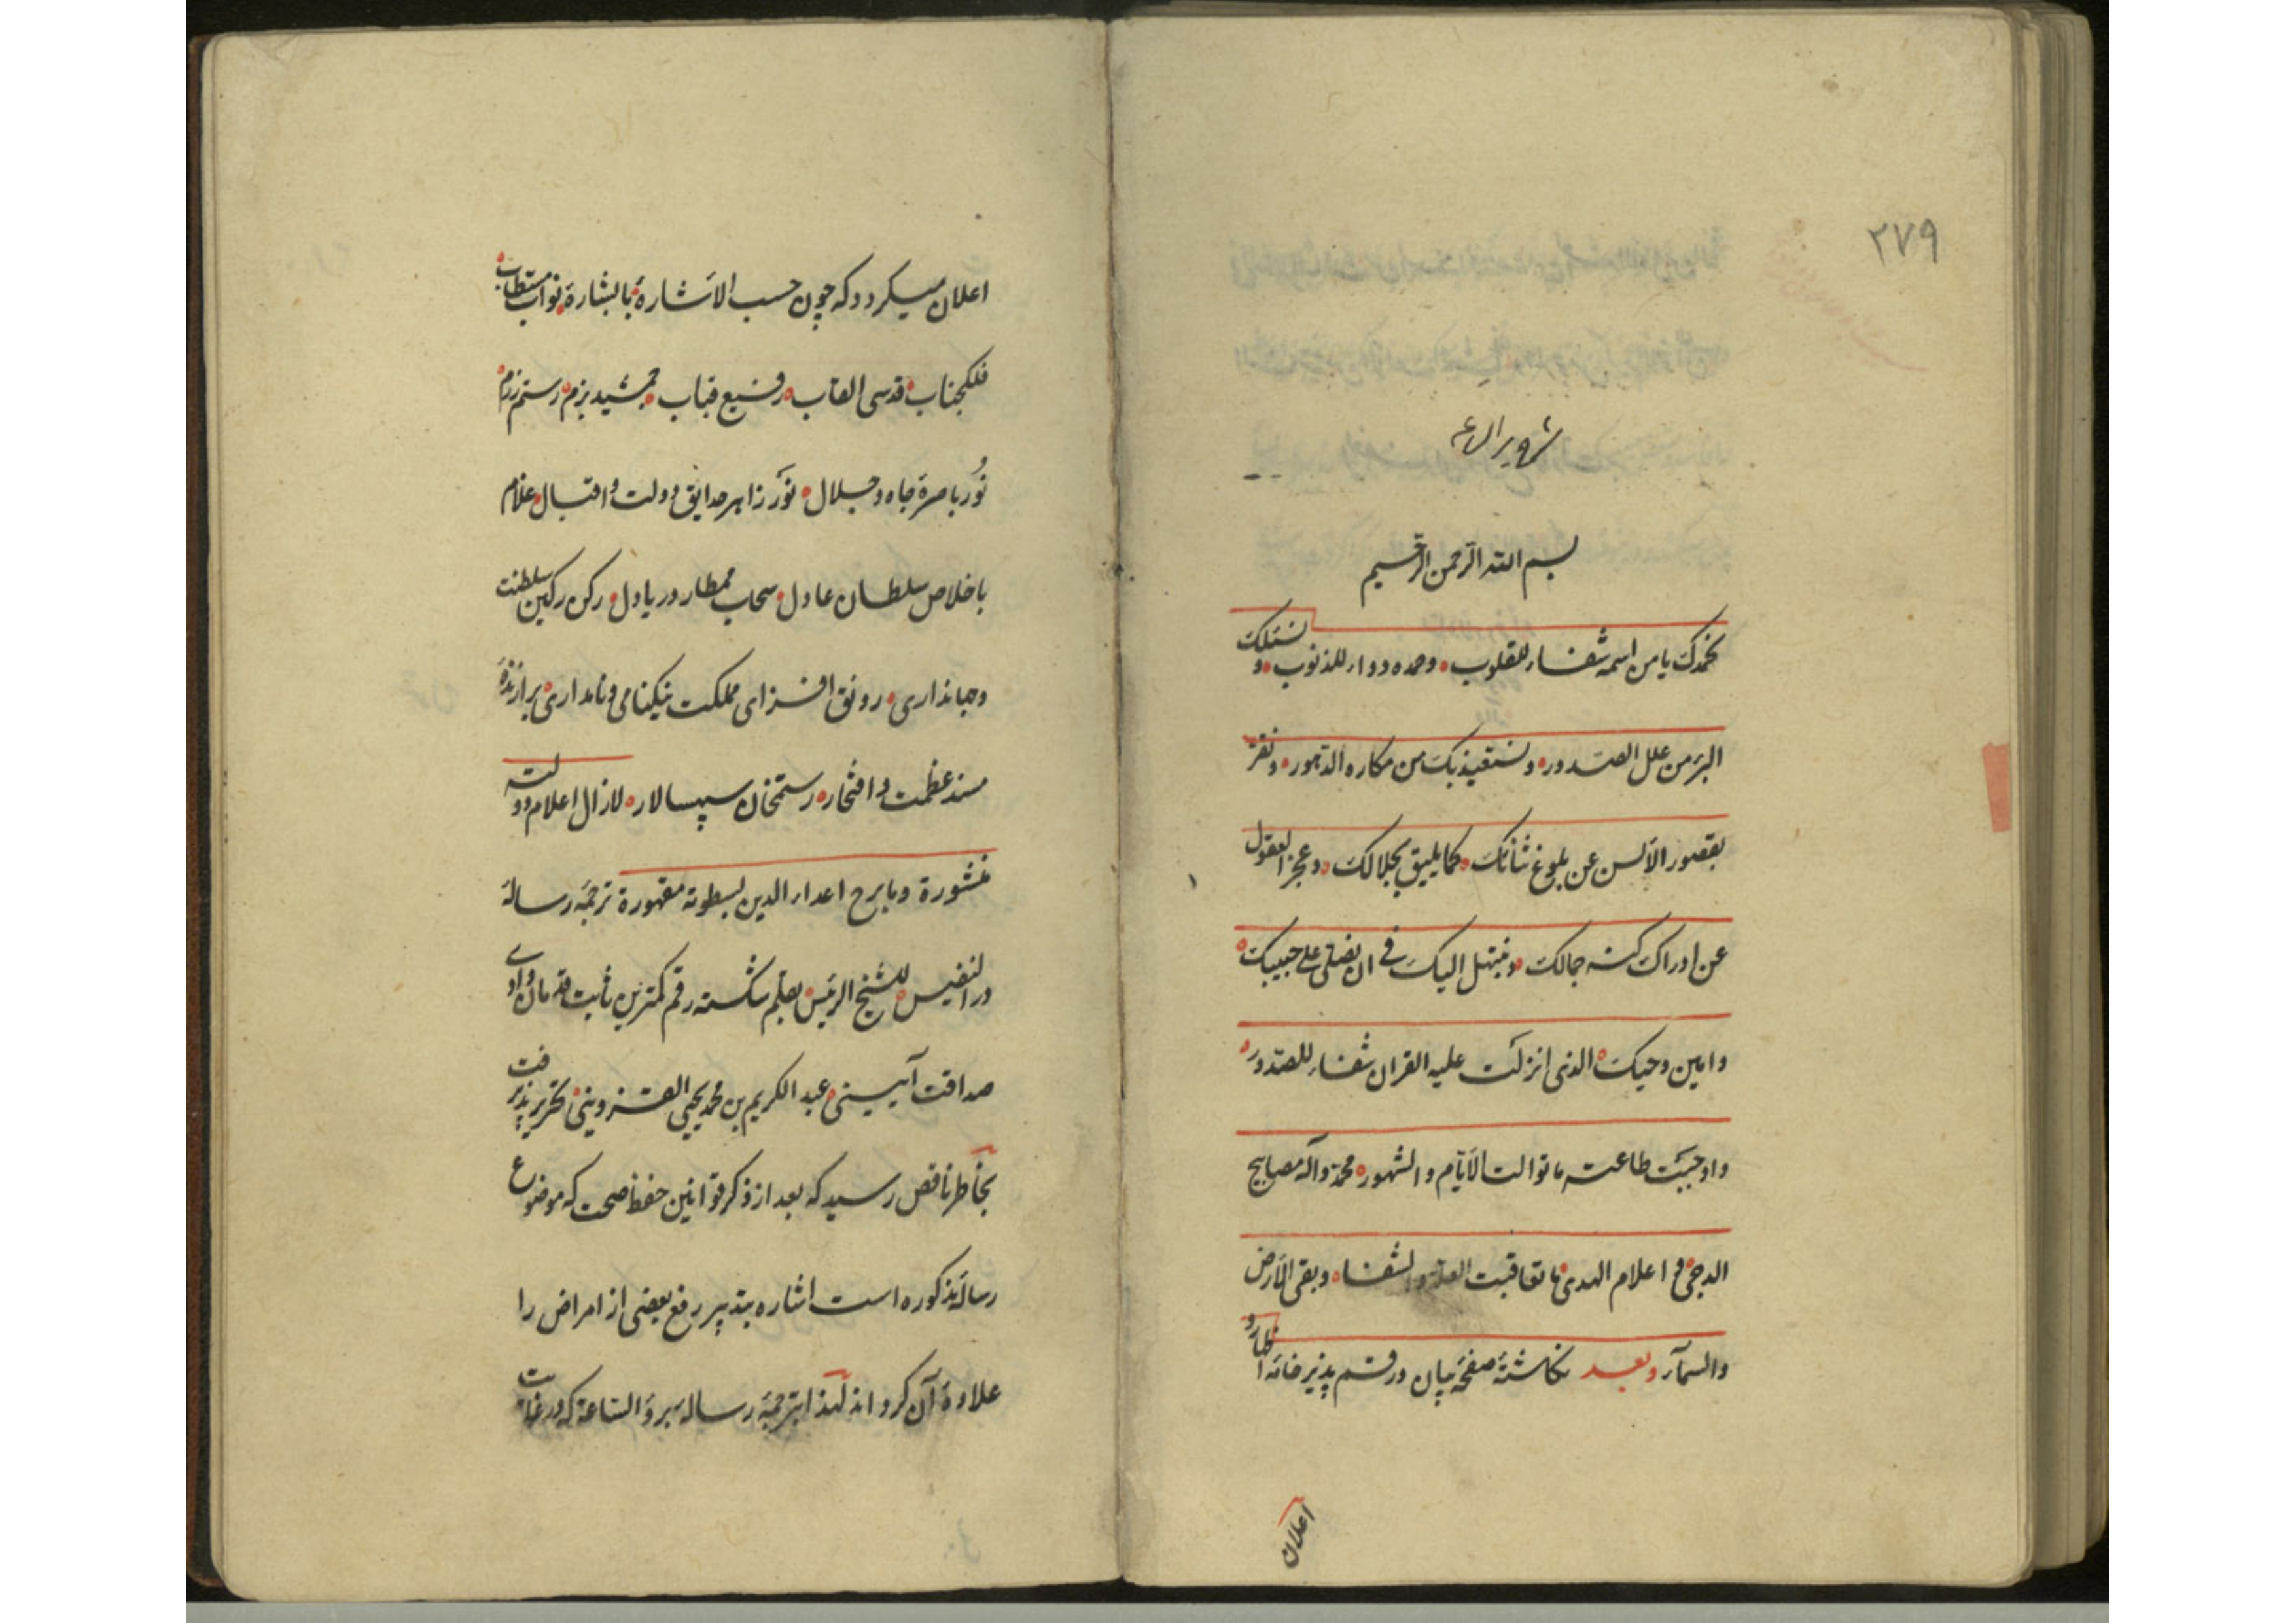 ۲۷۹
بسم الله الرحمن الرحیم
نحمدک یا من اسمه شفاء للقلوب وحمده دواء للذنوب و نسئلک
البرء من علل الصدور ونستعیذ بک من مکاره الدهور ونقر
بقصور الألسن عن بلوغ ثنائک کما یلیق بجلالک وعجز العقول
عن ادراک کنه جمالک ونبتهل الیک فی ان تصلی علی حبیبک
وامین وحیک الذی انزلت علیه القران شفاء للصدور
واوجبت طاعته ما توالت الأیام والشهور محمد وآله مصابیح
الدجی و اعلام الهدی ما تعاقبت العلة والشفاء وبقی الأرض
والسمآء وبعد نکاشتهٔ صفحهٔ بیان ورقم پذیر خامهٔ اظهار و
اعلان
اعلان میکردد که چون حسب الاشارهٔ بابشارهٔ نواب مستطاب
فلکجناب قدسی القاب رفیع قباب جمشید بزم رستم رزم
نور باصرهٔ جاه وجلال نور زاهر حدایق دولت واقبال غلام
باخلاص سلطان عادل سحاب ممطار دریادل رکن رکین سلطنت
وجهانداری رونق افزای مملکت نیکنامی ونامداری برازندهٔ
مسند عظمت وافتخار رستمخان سپهسالار لازال اعلام دولته
منشورة ومابرح اعداء الدین بسطوته مقهورة ترجمهٔ رسالهٔ
در النفیس للشیخ الرئیس بقلم شکسته رقم کمترین ثابت قدمان وادی
صداقت آیینی عبد الکریم بن محمد یحیی القزوینی تحریر پذیرفت
بخاطر ناقص رسید که بعد از ذکر قوانین حفظ صحت که موضوع
رسالهٔ مذکوره است اشاره بتدبیر رفع بعضی از امراض را
علاوهٔ آن کرداند لهذا بترجمهٔ رساله برؤ الساعة که در غایت